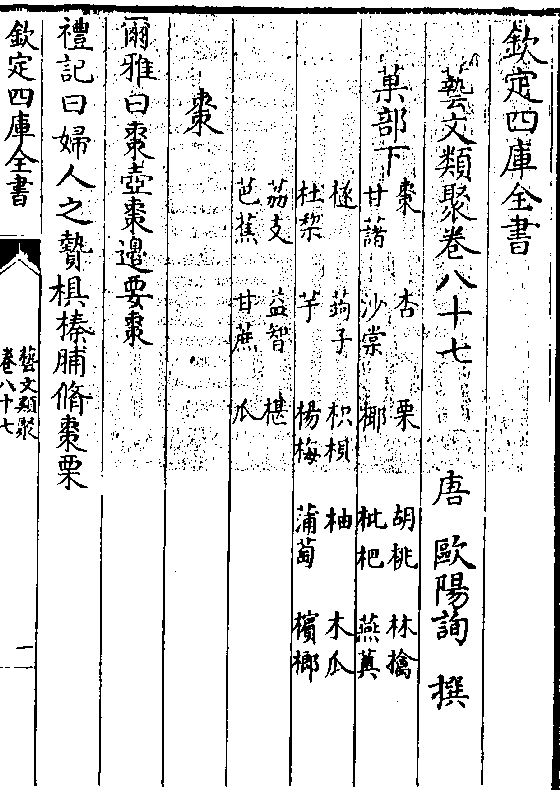 欽定四庫全書
藝文類聚卷八十七　唐　歐陽詢　撰
菓部下
棗　杏　栗　胡桃　林擒
甘藷　沙棠　椰　枇杷　燕薁
檖　蒟子　枳椇　柚　木瓜
杜梨　芋　楊梅　蒲萄　檳榔
荔支　益智　椹
芭蕉　甘蔗　瓜
棗
爾雅曰棗壺棗邉要棗
禮記曰婦人之贄椇榛脯脩棗栗
欽定四庫全書
藝文類聚
卷八十七
一